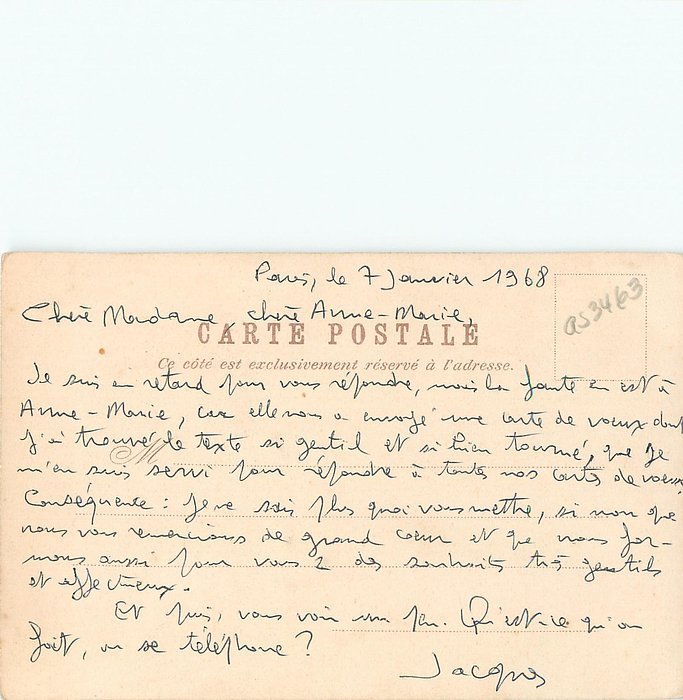 Paris, le 7 Janvier 1968
as3463
Chère Madame, chère Anne-Marie,
CARTE POSTALE
Ce côté est exclusivement réservé à l'adresse.
Je suis en retard pour vous répondre, mais la faute en est à
Anne-Marie, car elle nous a envoyé une carte de voeux dont
j'ai trouvé le texte si gentil et si bien tourné, que je
m'en suis servi pour répondre à toutes nos cartes de voeux.
Conséquence : je ne sais plus quoi vous mettre, si non que
nous vous remercions de grand coeur et que nous for-
mons aussi pour vous 2 des souhaits très gentils
et affectueux.
Et puis, vous voir un peu. Qu'est-ce qu'on
fait, on se téléphone ?
Jacques